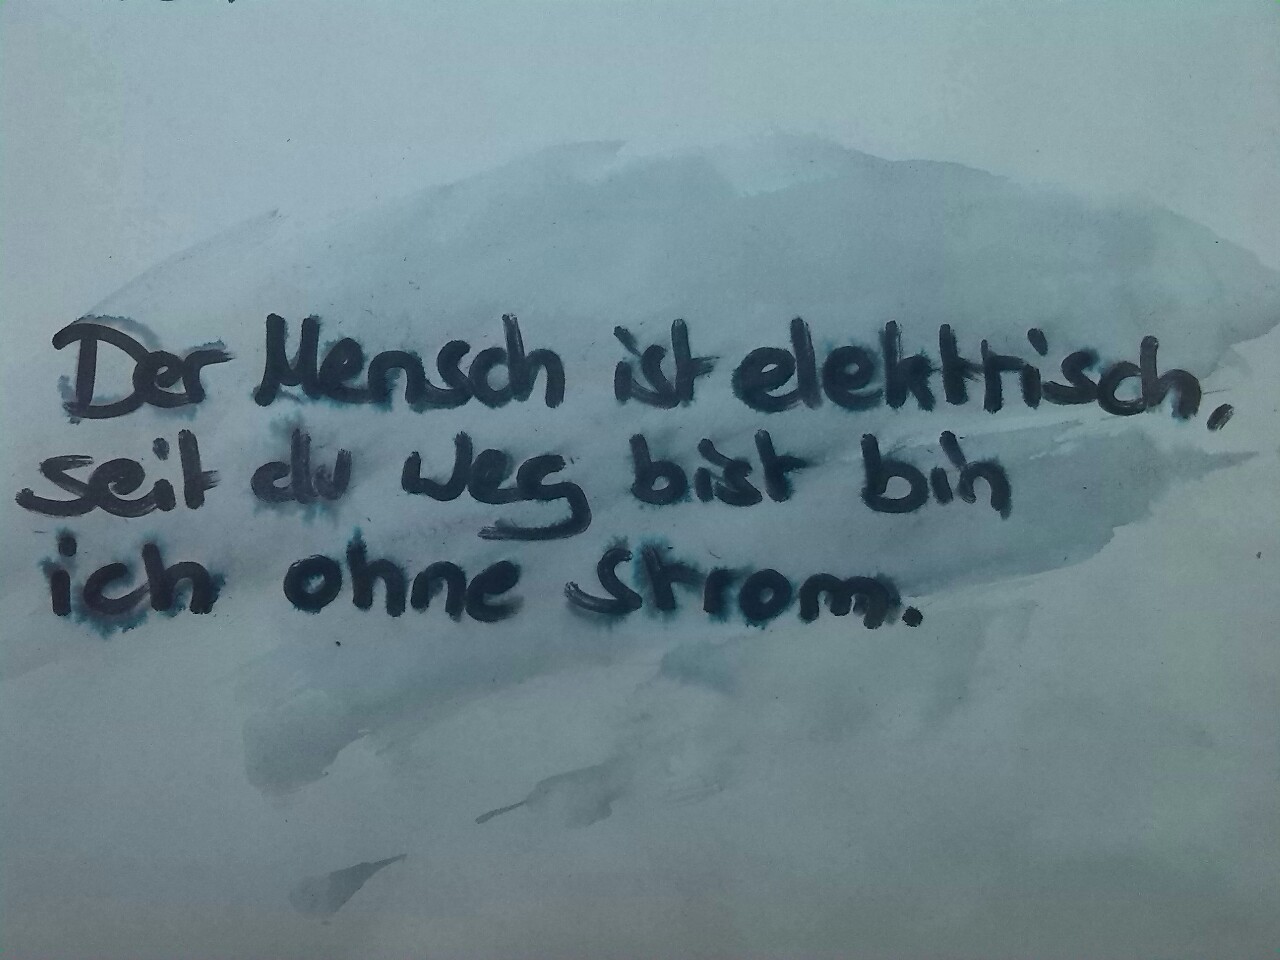 Der Mensch ist elektrisch,
seit du weg bist bin
ich ohne Strom.